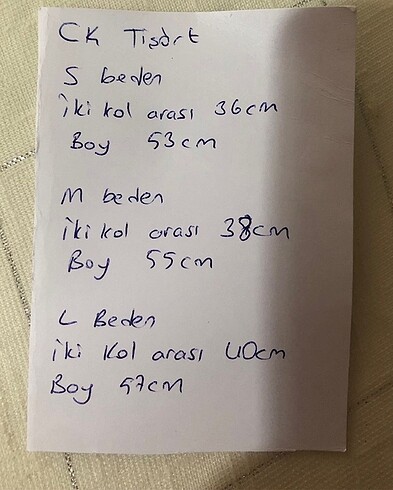 CK Tişört
S beden
iki kol arası 36cm
Boy 53cm
M beden
iki kol arası 38cm
Boy 55cm
L Beden
iki Kol arası 40cm
Boy 57cm